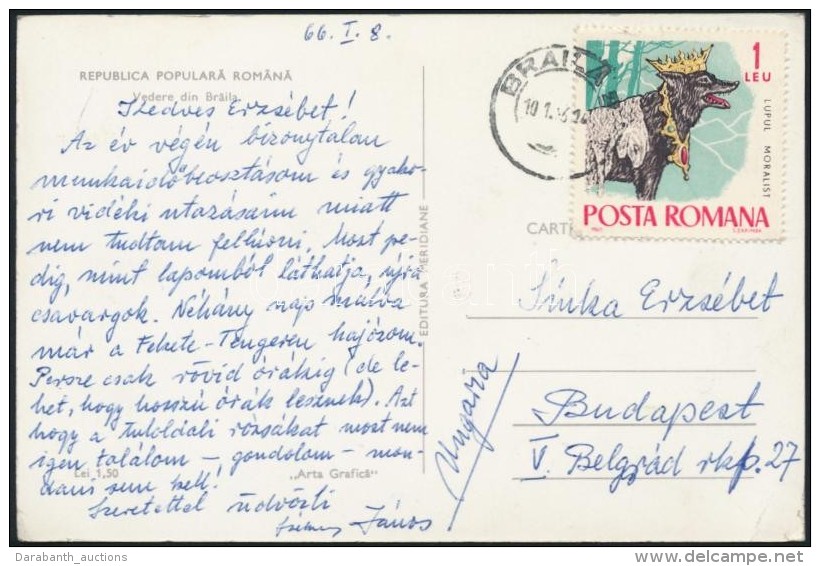 66. I. 8.
REPUBLICA POPULARĂ ROMÂNĂ
Vedere din Brăila
Kedves Erzsébet!
Az év végén bizonytalan
munkaidőbeosztásom és gyako-
ri vidéki utazásaim miatt
nem tudtam felhívni. Most pe-
dig, mint lapomból láthatja, újra
csavargok. Néhány nap mulva
már a Fekete-Tengeren hajózom.
Persze csak rövid órákig (de le-
het, hogy hosszú órák lesznek). Azt
hogy a tuloldali rózsákat most nem
igen találom – gondolom – mon-
dani sem kell!
Lei 1,50
„Arta Grafică"
Szeretettel üdvözli
János
EDITURA MERIDIANE
BRAILA
1
LEU
LUPUL MORALIST
POSTA ROMANA
CARTE
Sinka Erzsébet
Budapest
V. Belgrád rkp. 27
Ungaria
Darabanth_auctions